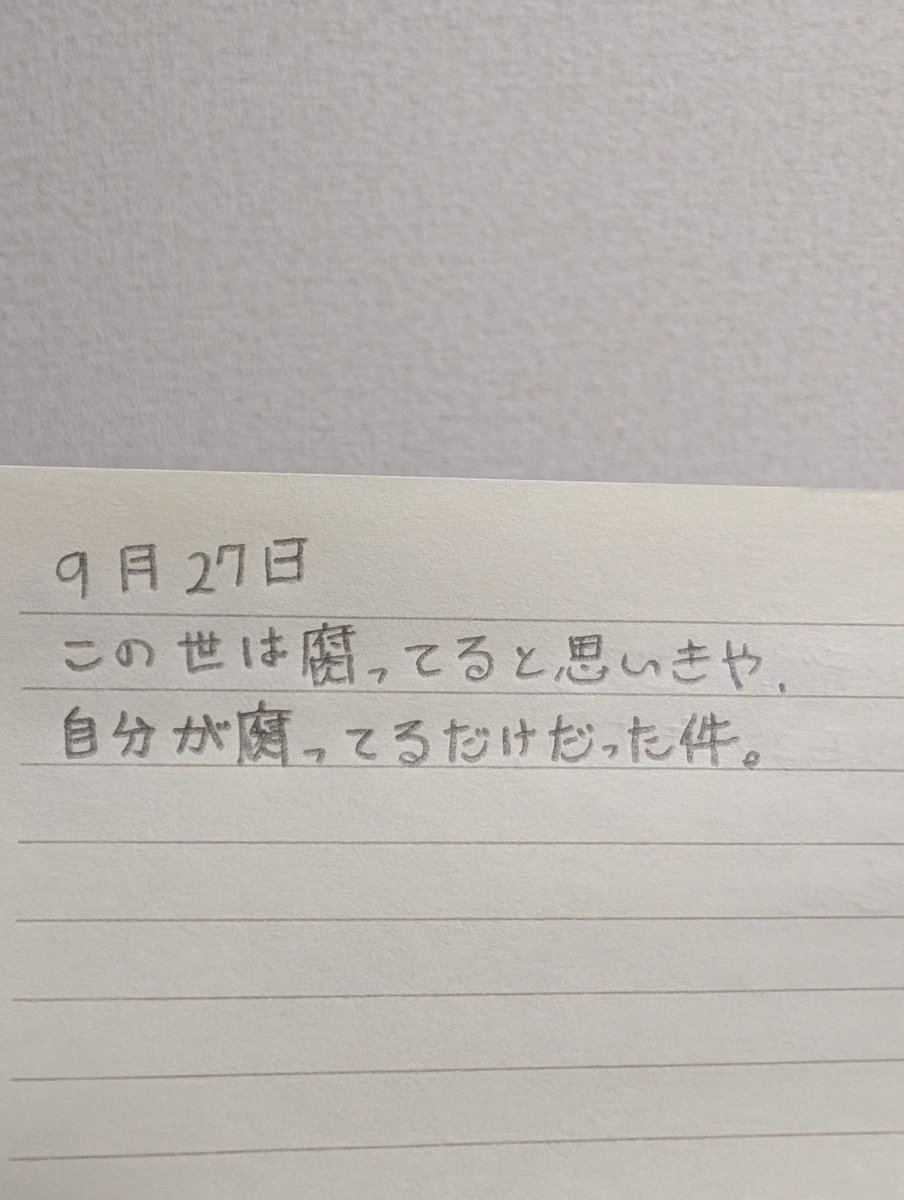 9月27日
この世は腐ってると思いきや、
自分が腐ってるだけだった件。